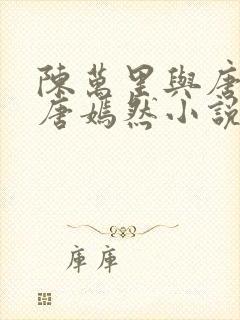 陳萬里與唐
唐嫣然小說
庫庫